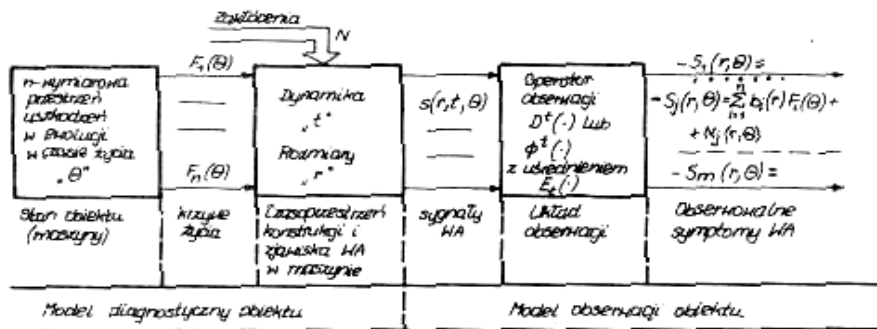 zakłócenia
N
n-wymiarowa
przestrzeń
uszkodzeń
w ewolucji
w czasie życia
„Θ"
F₁(Θ)
Fₙ(Θ)
Dynamika
„t"
Rozmiary
„r"
s(r,t,Θ)
Operator
obserwacji
Dᵗ(·) lub
ϕᵗ(·)
z uśrednieniem
Eₜ(·)
- S₁(r,Θ) =
- Sⱼ(r,Θ) = Σ bᵢ(r) Fᵢ(Θ) +
+ Nⱼ(r,Θ)
- Sm(r,Θ) =
Stan obiektu
(maszyny)
krzywe
życia
Czasoprzestrzeń
konstrukcji i
zjawiska WA
w maszynie
sygnały
WA
Układ
obserwacji
Obserwowalne
symptomy WA
Model diagnostyczny obiektu
Model obserwacji obiektu